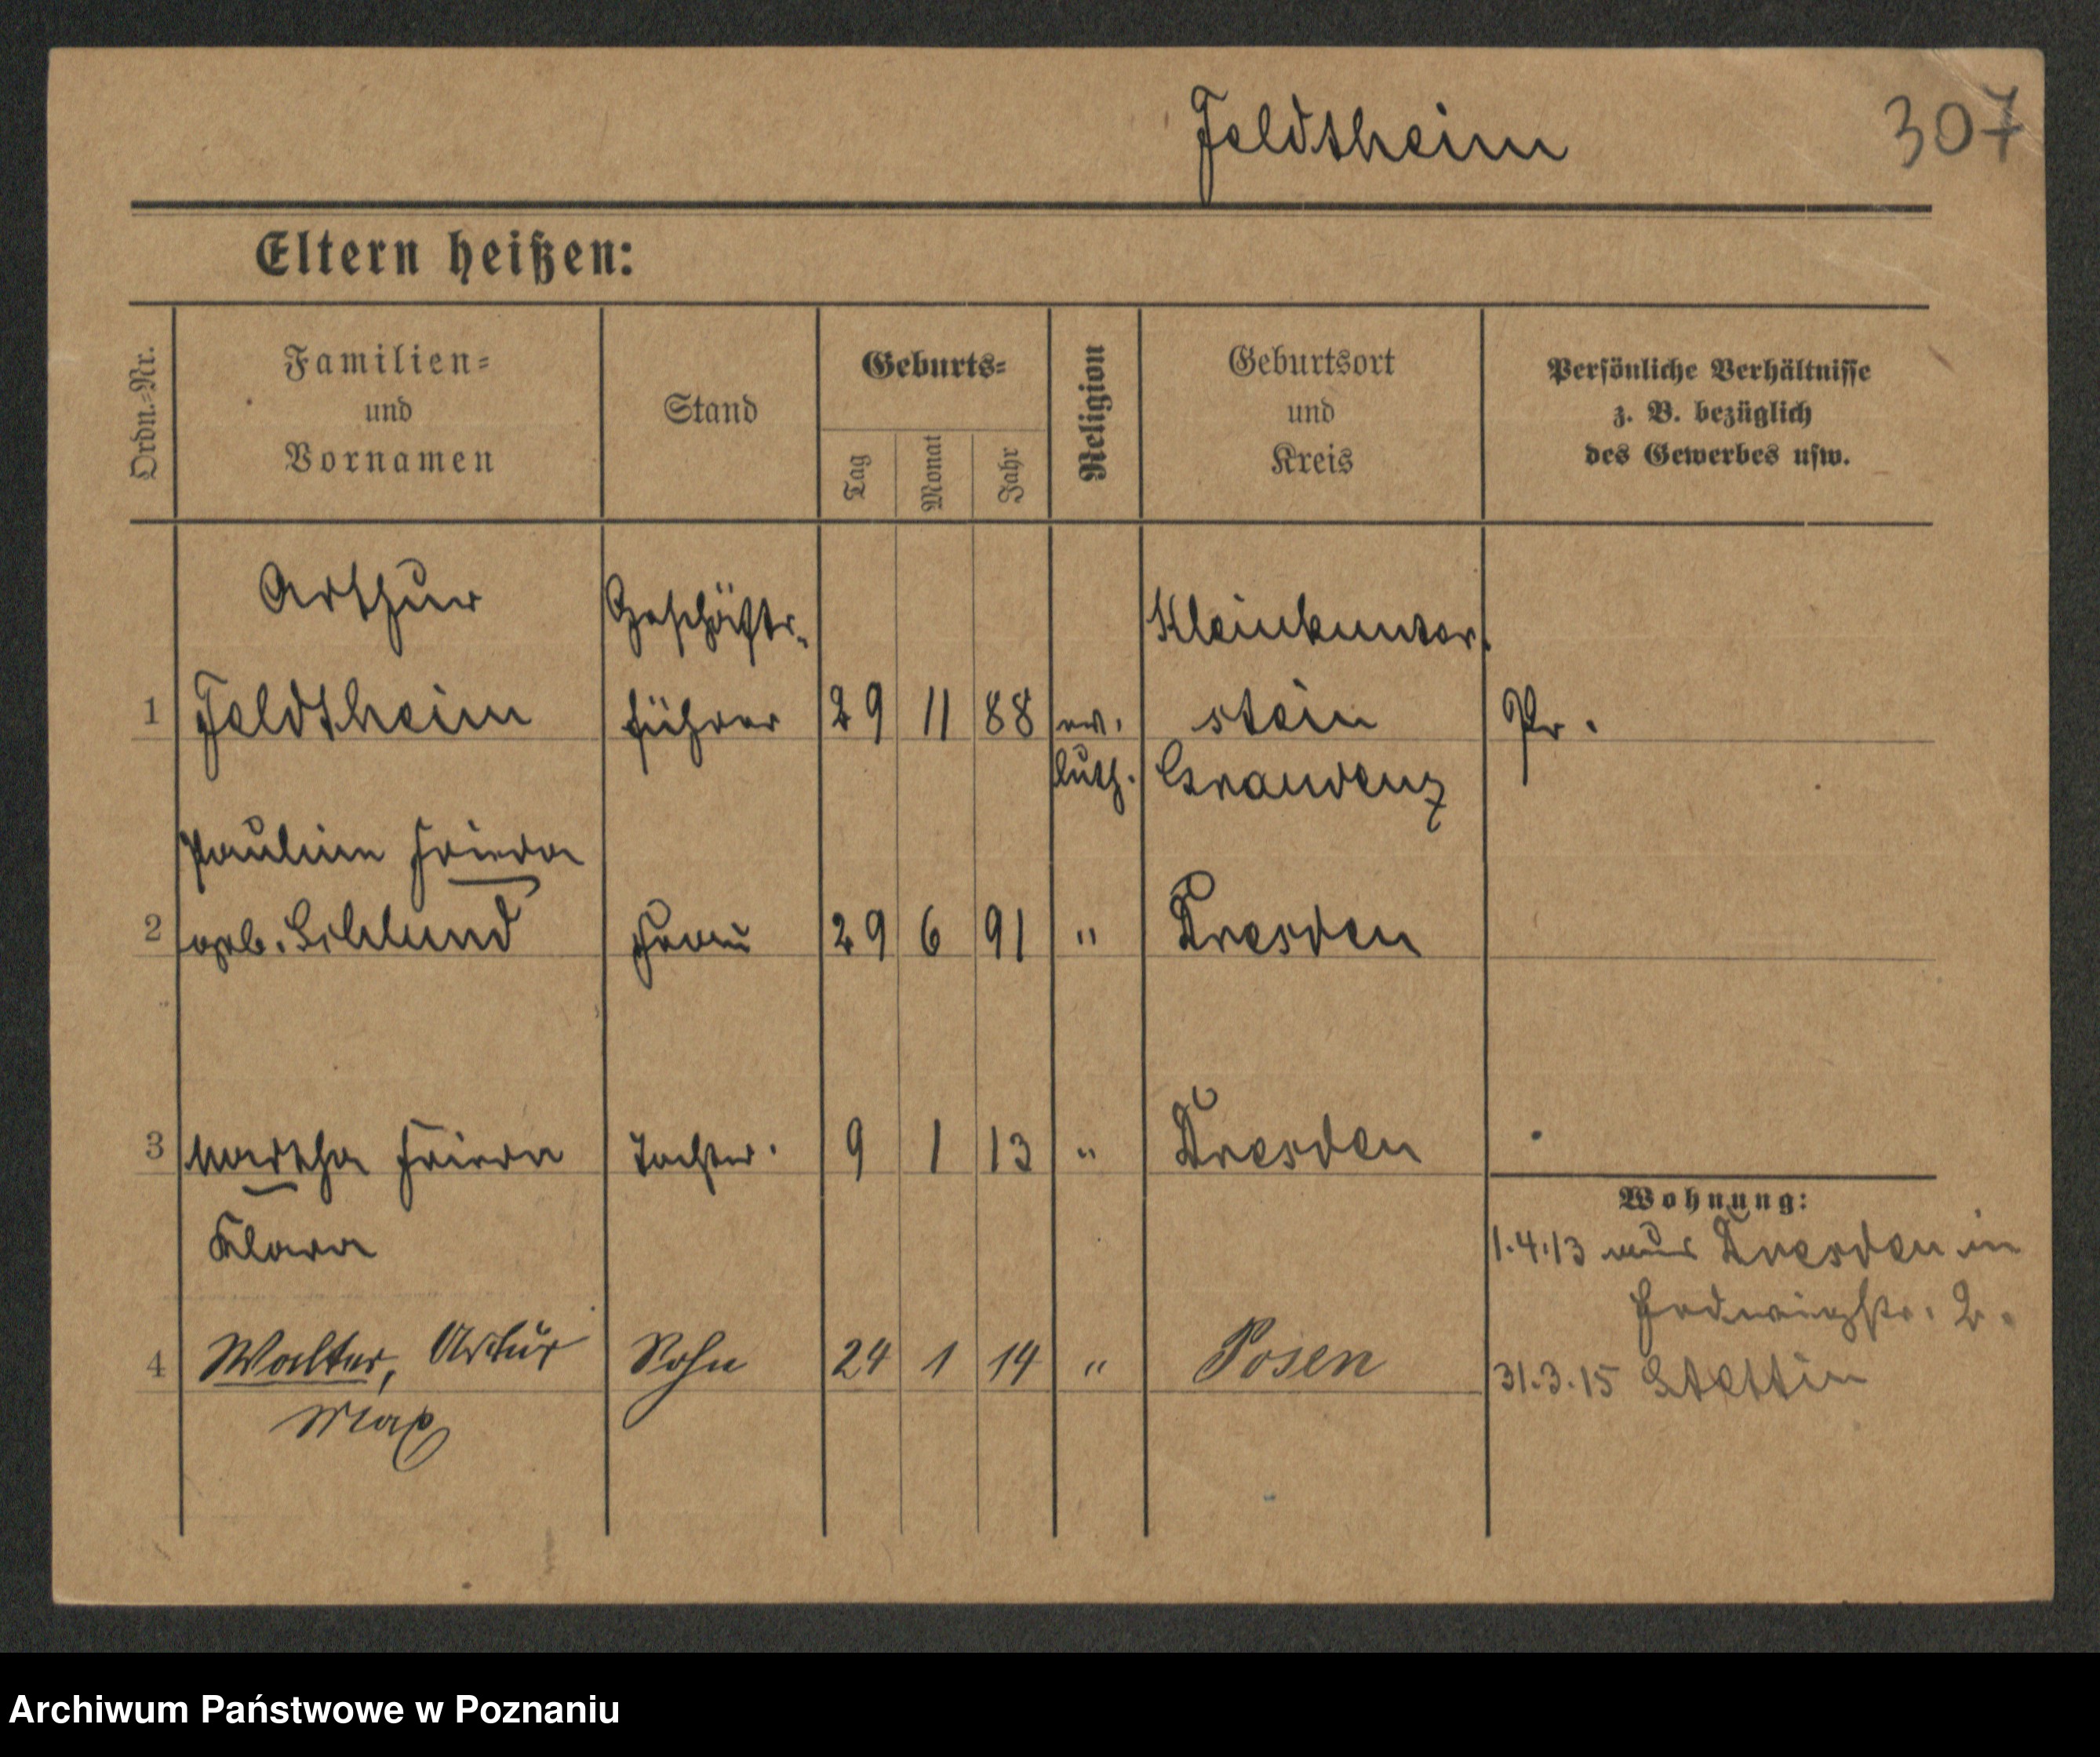 Feldtheim
307
Eltern heißen:
Ordn.-Nr.
Familien-
und
Vornamen
Stand
Geburts-
Tag
Monat
Jahr
Religion
Geburtsort
und
Kreis
Persönliche Verhältnisse
z. B. bezüglich
des Gewerbes usw.
Arthur
Geschäfts-
1 Feldtheim führer 29 11 88 ev. stein Pr.
luth. Graudenz
Pauline Frieda
2 geb. Schlund Frau 29 6 91 " Dresden
3 Martha Frieda Tochter. 9 1 13 " Dresden
Klara
Wohnung:
1.4.13 aus Dresden in
Hedwigstr. 2.
4 Walter, Artur Sohn 24 1 14 " Posen
31.3.15 Stettin
Max
Archiwum Państwowe w Poznaniu